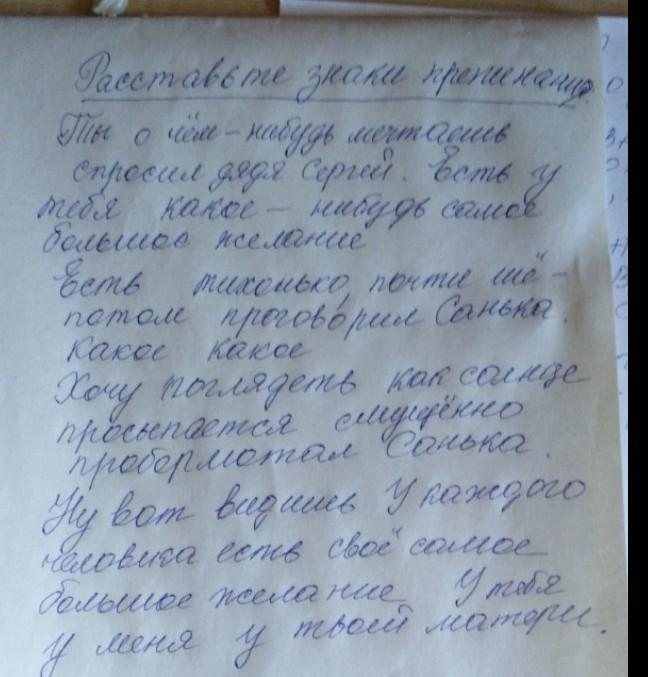 Расставьте знаки препинания.
Ты о чём-нибудь мечтаешь
спросил дядя Сергей. Есть у
тебя какое-нибудь самое
большое желание
Есть тихонько, почти шё-
потом проговорил Санька.
Какое какое
Хочу поглядеть как солнце
просыпается смущённо
пробормотал Санька.
Ну вот видишь У каждого
человека есть своё самое
большое желание У тебя
у меня у твоей матери.